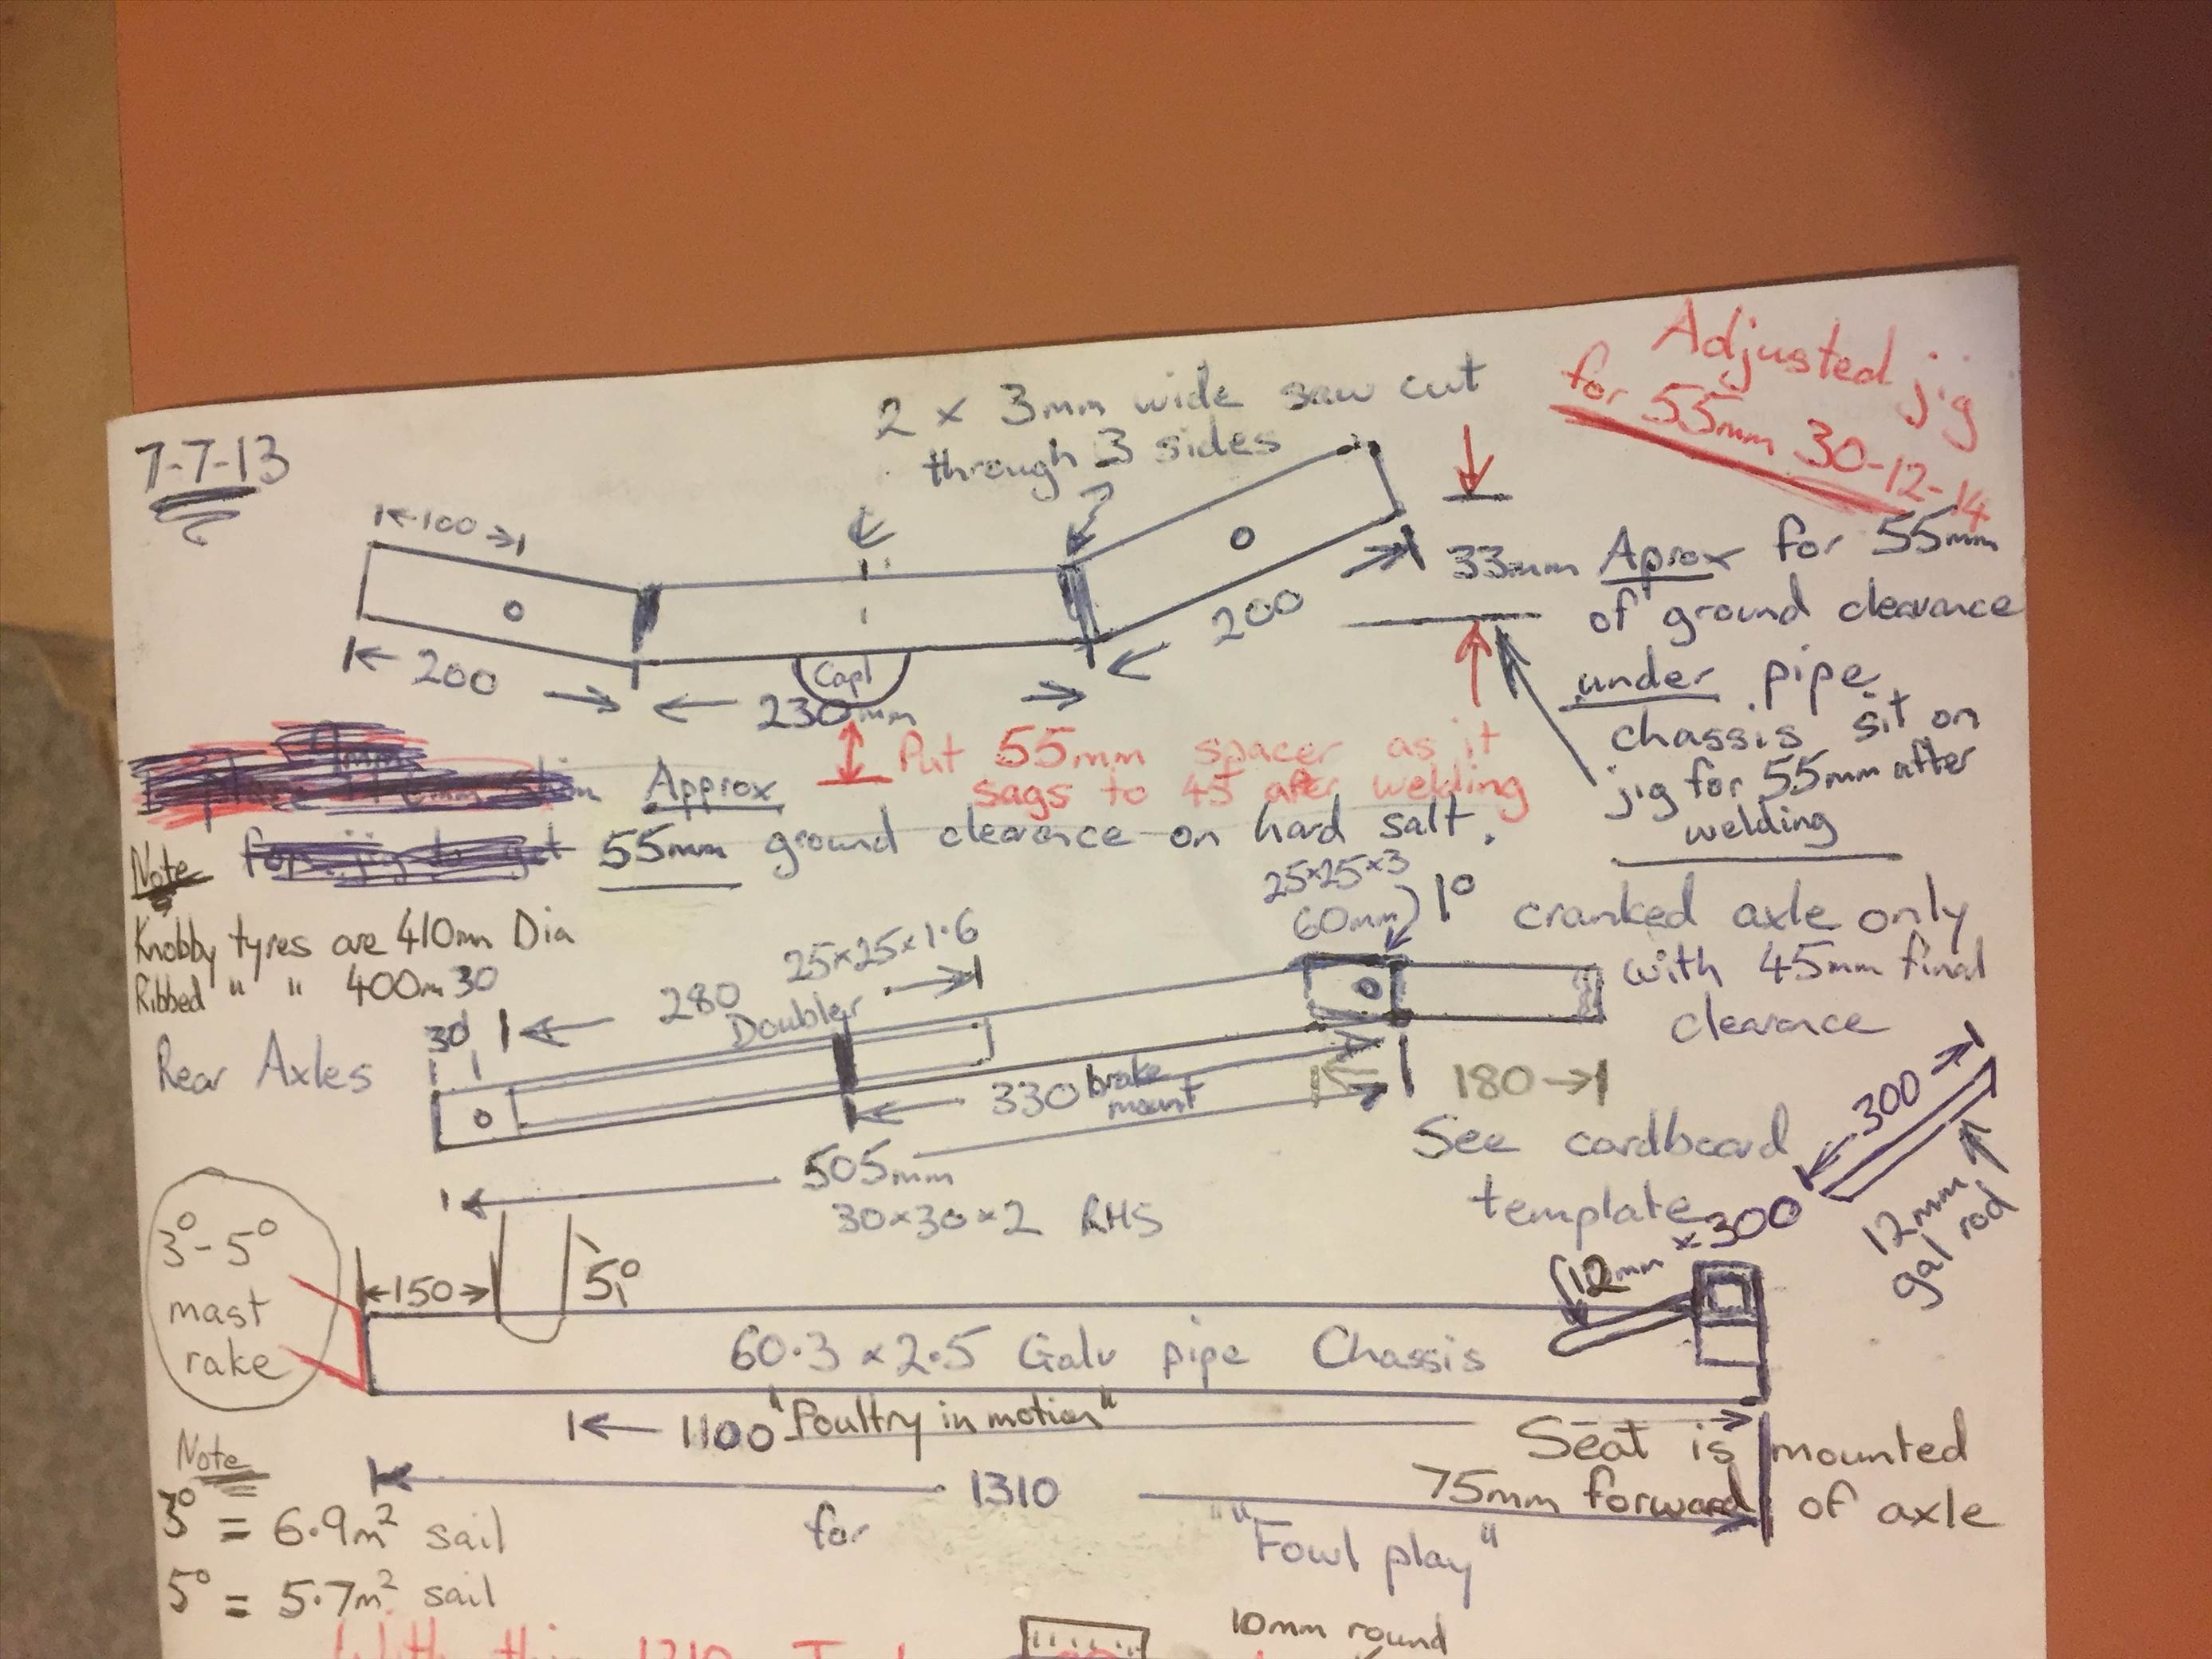 Adjusted jig
for 55mm 30-12-14
7-7-13
2 x 3mm wide saw cut
through 3 sides
100
33mm Aprox for 55mm
of ground clearance
under pipe
chassis sit on
jig for 55mm after
welding
200
200
Capl
230mm
Put 55mm spacer as it
sags to 45 after welding
Approx
55mm ground clearance on hard salt.
Note
Knobby tyres are 410mm Dia
Ribbed " " 400m 30
25x25x3
60mm
1° cranked axle only
with 45mm final
clearance
25x25x1.6
280
Doubler
30
Rear Axles
330 brake
mount
180
505mm
30x30x2 RHS
See cardboard
template
300
12mm
gal rod
12mm x 300
3°-5°
mast
rake
150
5°
60.3 x 2.5 Galv pipe Chassis
1100 "Poultry in motion"
Seat is mounted
75mm forward of axle
1310
for "Fowl play"
Note
3° = 6.9m² sail
5° = 5.7m² sail
10mm round